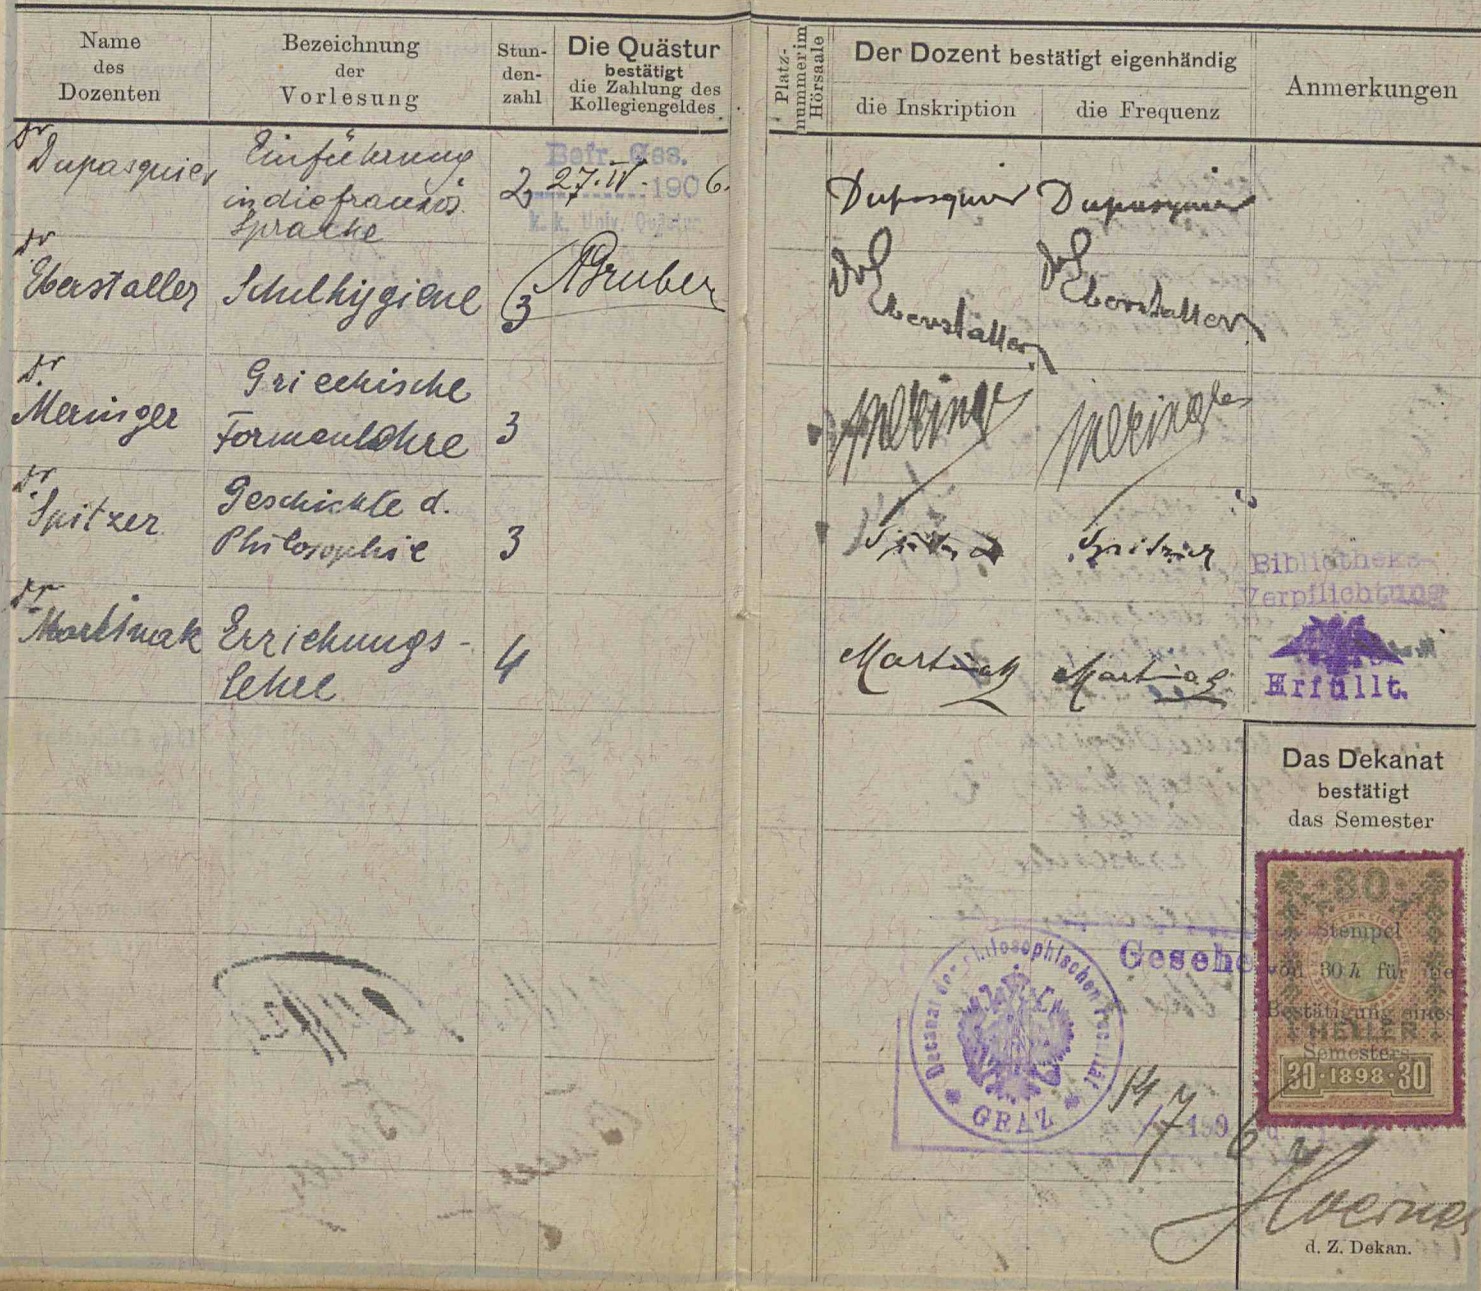 Name
des
Dozenten
Bezeichnung
der
Vorlesung
Stun-
den-
zahl
Die Quästur
bestätigt
die Zahlung des
Kollegiengeldes
Platz-
nummer im
Hörsaale
Der Dozent bestätigt eigenhändig
die Inskription
die Frequenz
Anmerkungen
Dr
Dupasquier
Einführung
in die französ.
Sprache
2
Befr. Ges.
27. IV. 1906.
k. k. Univ. Quästur
Dupasquier Dupasquier
Dr
Eberstaller Schulhygiene 3
AGruber
Dr Eberstaller
Dr Eberstaller
Dr.
Meringer
Griechische
Formenlehre 3
Meringer Meringer
Dr.
Spitzer
Geschichte d.
Philosophie 3
Spitzer Spitzer
Bibliotheks-
Verpflichtung
Erfüllt.
Dr.
Martinak Erziehungs-
lehre 4
Martinak Martinak
Das Dekanat
bestätigt
das Semester
30
Stempel
von 30 h für die
Bestätigung eines
HELLER
Semesters
30 · 1898 · 30
Gesehe
Decanat der philosophischen Facultät
GRAZ
14/7 1906
Hoernes
d. Z. Dekan.